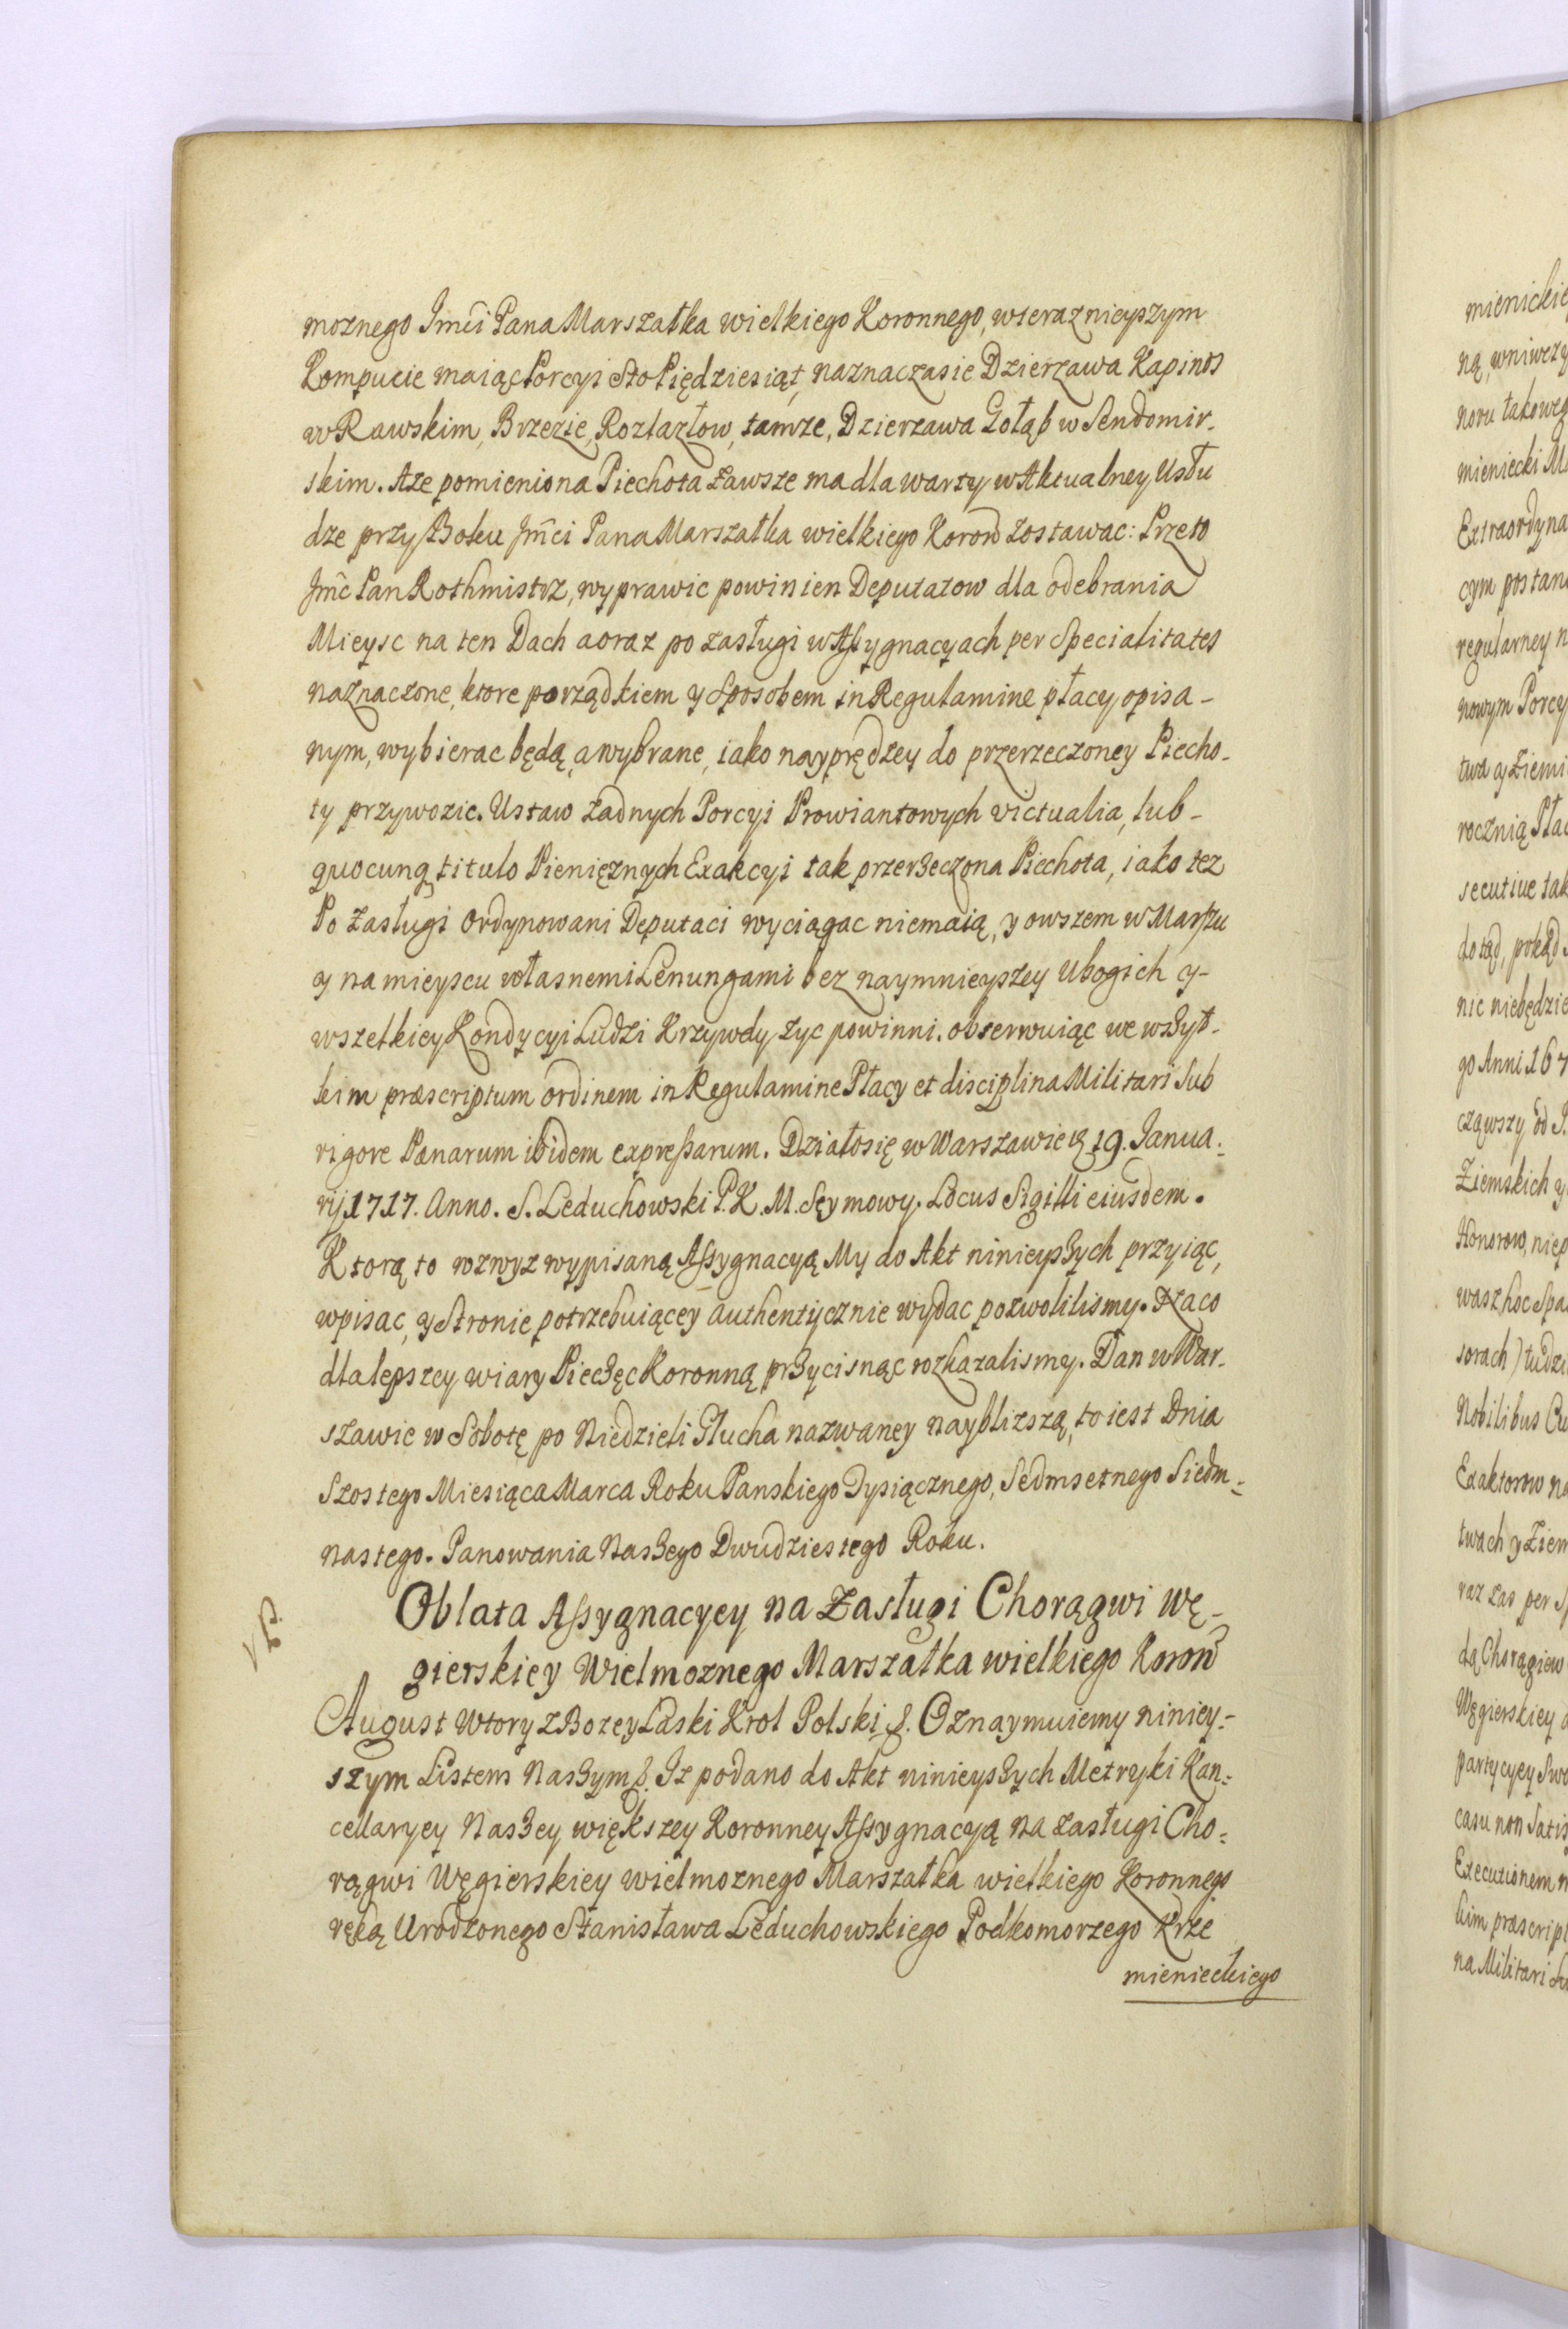 moznego Jmci Pana Marszałka wielkiego Koronnego, wteraznieyszym
Kompucie maiąc Porcyi Sto Piędziesiąt, naznacza sie Dzierzawa Kapinos
w Rawskim, Brzezie, Rozlazłow, tamze, Dzierzawa Gołąb w Sendomir-
skim. Aze pomieniona Piechota zawsze ma dla warty w Aktualney Usłu
dze przy Boku Jmci Pana Marszałka wielkiego Koron zostawac: Przeto
Jmc Pan Rothmistrz, wyprawic powinien Deputatow dla odebrania
Mieysc na ten Dach a oraz po zasługi w Assygnacyach per Specialitates
naznaczone, ktore porządkiem y Sposobem in Regulamine płacy opisa-
nym, wybierac będą, a wybrane, iako nayprędzey do przerzeczoney Piecho-
ty przywozic. Ustaw zadnych Porcyi Prowiantowych victualia, lub-
quocunq titulo Pienięznych Exakcyi tak przerzeczona Piechota, iako tez
Po zasługi Ordynowani Deputaci wyciągac niemaią, y owszem w Marszu
y na mieyscu własnemi Lenungami bez naymnieyszey Ubogich y-
wszelkiey Kondycyi Ludzi Krzywdy zyc powinni. obserwuiąc we wszyt-
kim præscriptum ordinem in Regulamine Płacy et disciplina Militari Sub
rigore Pænarum ibidem expressarum. Działosię w Warszawie 19. Janua-
rij 1717. Anno. S. Leduchowski P. K. M. Seymowy. Locus Sigilli eiusdem.
Ktorą to wzwyz wypisaną Assygnacyą My do Akt ninieyszych przyiąc,
wpisac, y Stronie potrzebuiącey authentycznie wydac pozwolilismy. Na co
dla lepszey wiary Pieczęc Koronną przycisnąc rozkazalismy. Dan w War-
szawie w Sobotę po Niedzieli Głucha nazwaney naybliszszą, to iest Dnia
Szostego Miesiąca Marca Roku Panskiego Tysiącznego, Sedmsetnego Siedm-
nastego. Panowania Naszego Dwudziestego Roku.
Oblata Assygnacyey na Zasługi Chorągwi Wę-
gierskiey Wielmoznego Marszałka wielkiego Koron
August Wtory z Bozey Łaski Krol Polski &. Oznaymuiemy niniey-
szym Listem Naszym &. Iz podano do Akt ninieyszych Metryki Kan-
cellaryey Naszey większey Koronney Assygnacyą na zasługi Cho-
rągwi Węgierskiey wielmoznego Marszałka wielkiego Koronnego
ręką Urodzonego Stanisława Leduchowskiego Podkomorzego Krze
mienieckiego
mienickie
ną, wniwczy
noru takoweg
mieniecki Ma
Extraordyna
cym postan
regularney n
nowym Porcy
twa y Ziemi
rocznią Płac
secutiue tak
dotąd, pokąd
nic niebędzie
go Anni 167
cząwszy od
Ziemskich y
Honorow, niep
wasz hoc Spa
sorach) tudzi
Nobilibus
Exaktorow na
twach y Ziem
raz zas per
dą Chorągiew
Węgierskiey
partycyey Swo
casu non Satis
Executionem
kim præscript
na Militari